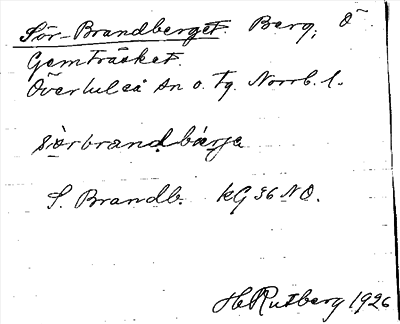 Sör-Brandberget. Berg, Ö
Gemträsket.
Överluleå sn o. tg. Norrb. l.
sörbrandbärje
S. Brandb. kG 36 NO.
H. Rutberg 1926